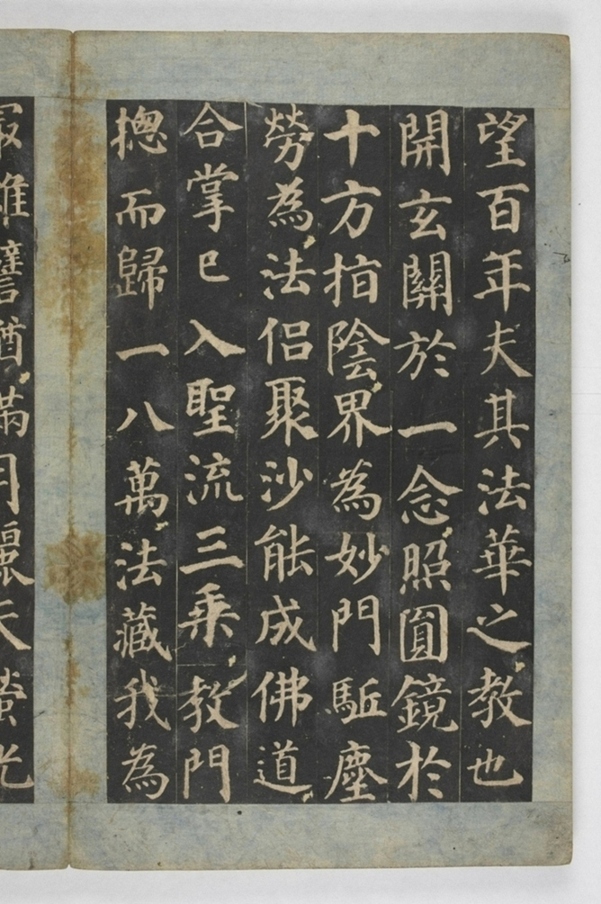 望百年夫其法華之教也
開玄關於一念照圓鏡於
十方指陰界為妙門駈塵
勞為法侶聚沙能成佛道
合掌已入聖流三乘教門
揔而歸一八萬法藏我為
最雖譬猶滿月麗天螢光